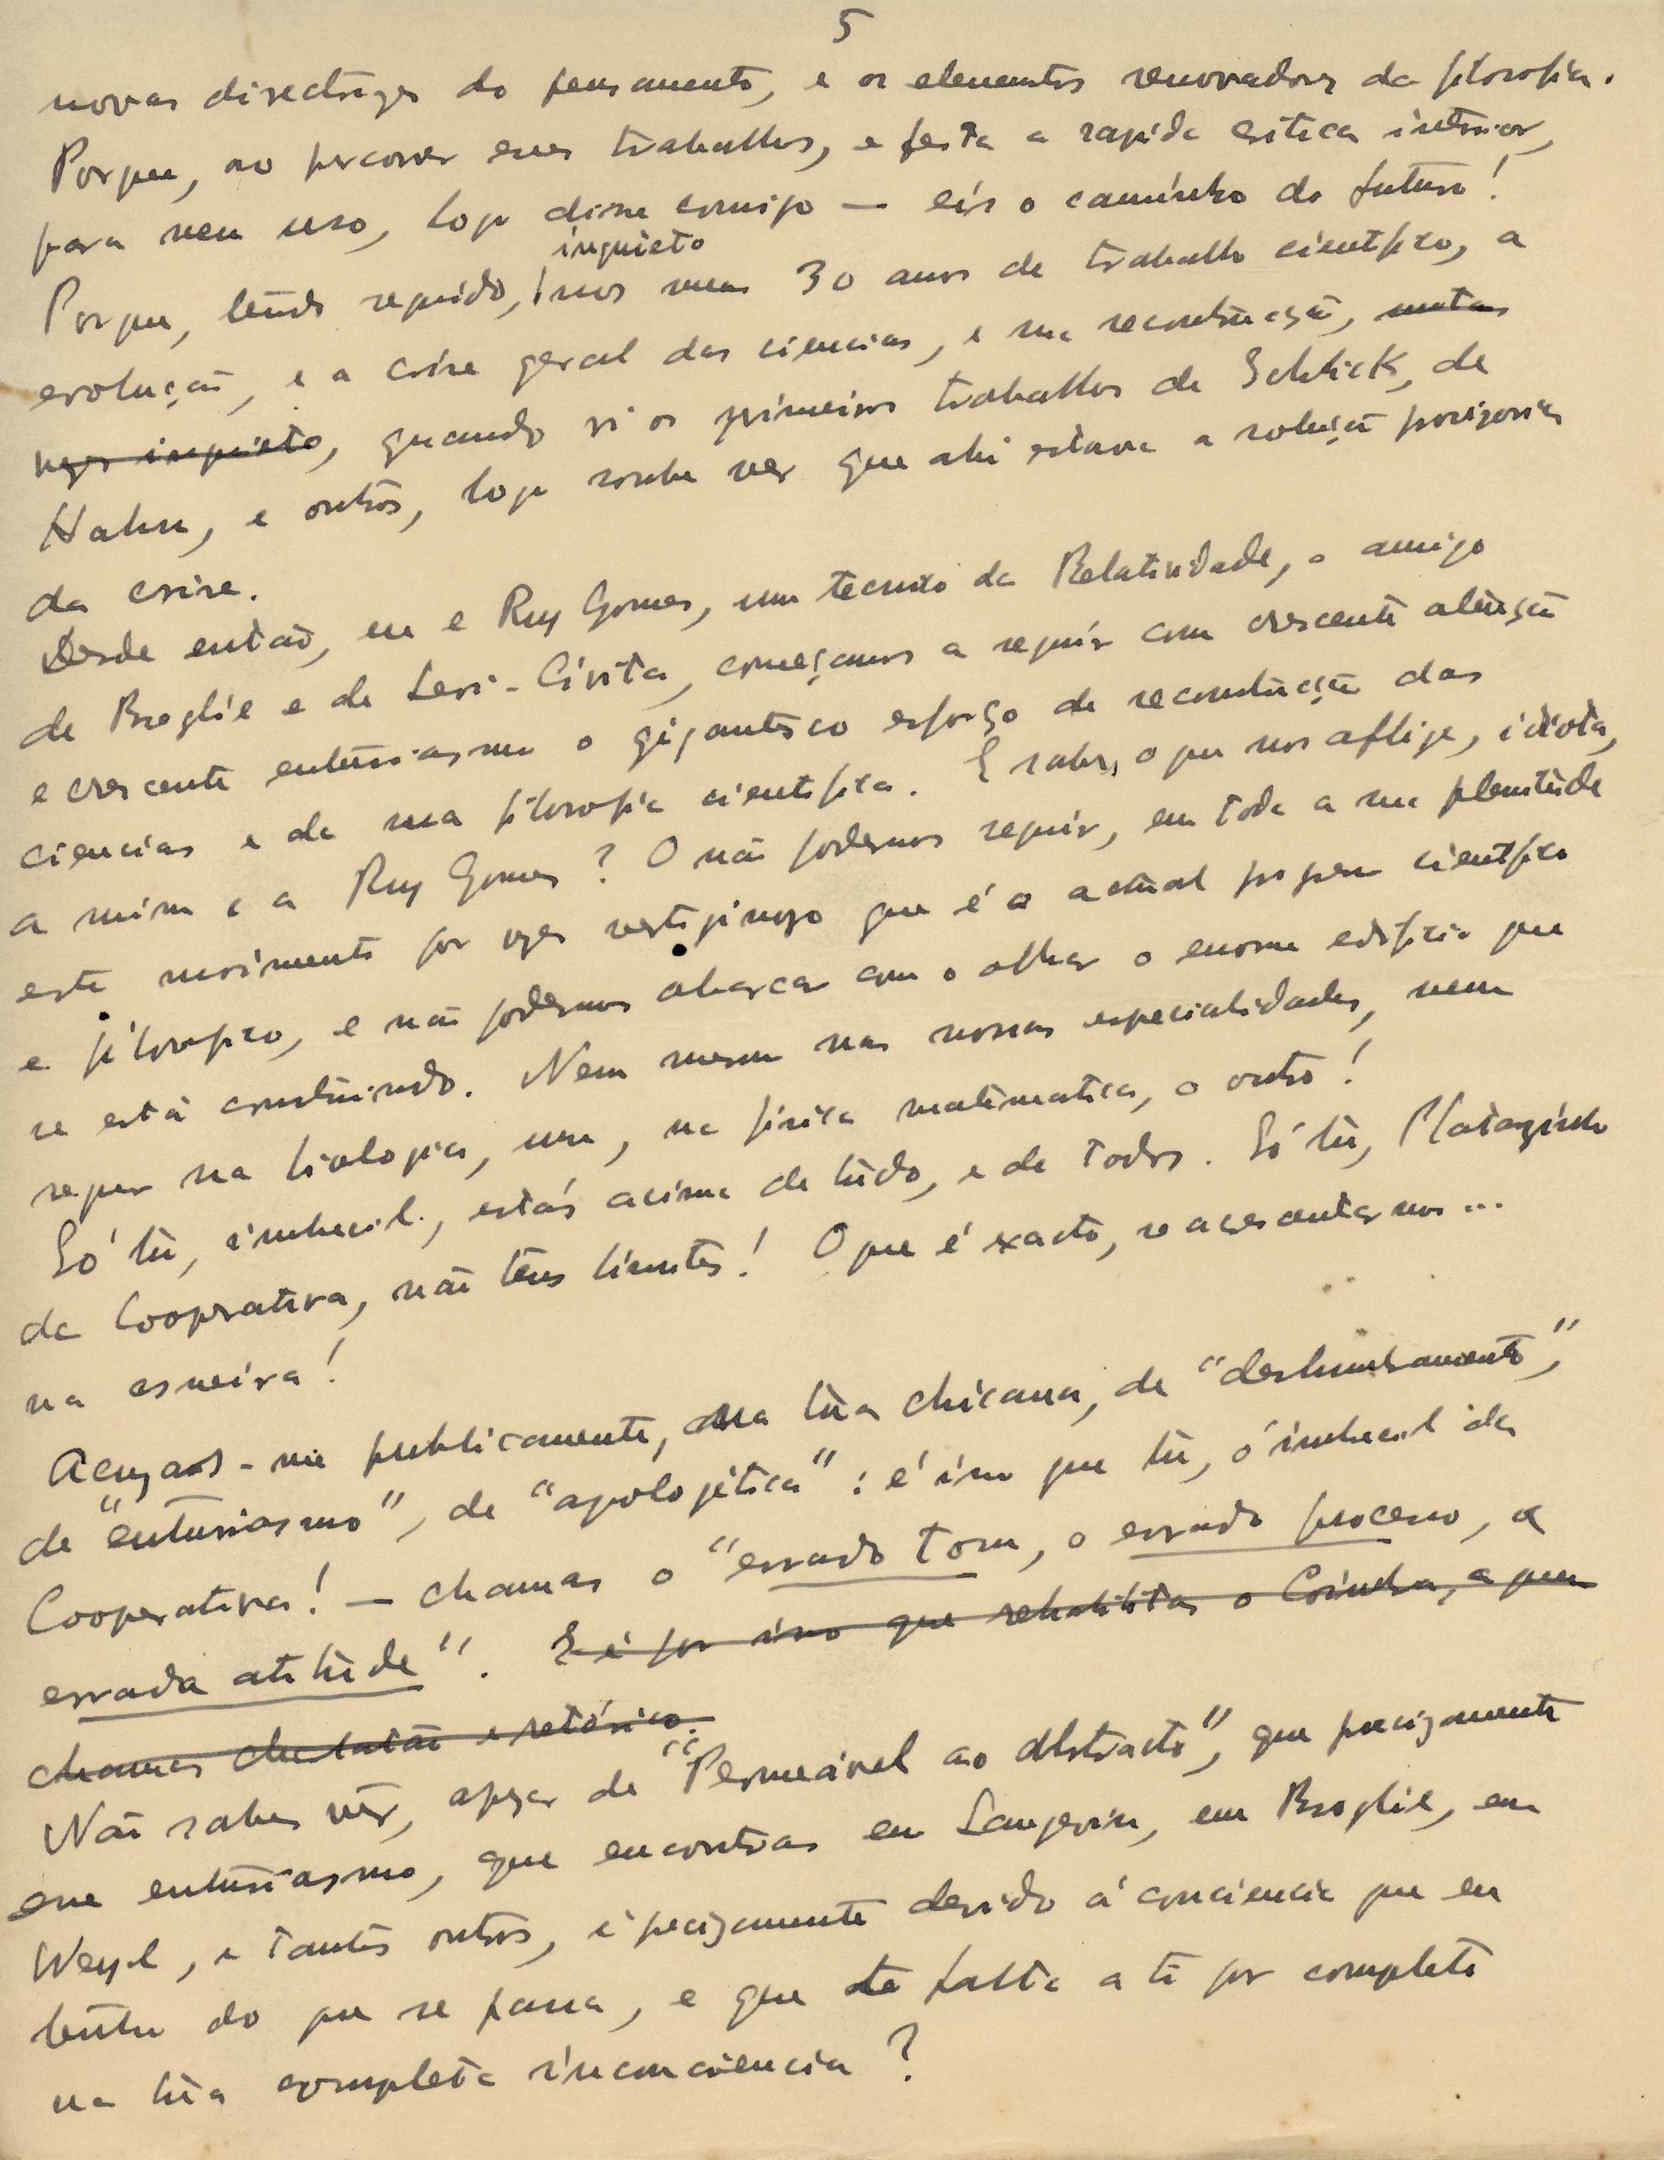 5
novas directrizes do pensamento, e os elementos renovadores da filosofia.
Porque, ao percorrer esses trabalhos, e feita a rapida critica interior,
para meu uso, logo disse comigo — eis o caminho do futuro!
inquieto
Porque, tendo seguido, nos meus 30 anos de trabalho cientifico, a
evolução, e a crise geral das ciencias, e sua reconstrução, muitas
vezes inquieto, quando vi os primeiros trabalhos de Schlick, de
Hahn, e outros, logo soube ver que ahi estava a solução
da crise.
Desde então, eu e Ruy Gomes, um tecnico da Relatividade, o amigo
de Broglie e de Levi-Civita, começamos a seguir com crescente atenção
e crescente entusiasmo o gigantesco esforço de reconstrução das
ciencias e da sua filosofia cientifica. E sabes o que nos aflige, idiota,
a mim e a Ruy Gomes? O não podermos seguir, em toda a sua plenitude
este movimento por vezes vertiginoso que é o actual progresso cientifico
e filosofico, e não podermos abarcar com o olhar o enorme edificio que
se está construindo. Nem mesmo nas nossas especialidades, nem
sequer na biologia, um, na fisica matematica, o outro!
Só tu, imbecil, estás acima de tudo, e de todos. Só tu,
da Cooperativa, não tens limites! O que é exacto, se acrescentarmos...
na asneira!
Acuzas-me publicamente, na tua chicana, de "deslumbramento",
de "entusiasmo", de "apologética": é isso que tu, ó imbecil da
Cooperativa! — chamas o "errado tom, o errado processo, a
errada atitude". E é por isso que rehabilitas o Coimbra, a quem
chamas charlatão e retórico.
Não sabes vêr, apezar de "Permeável ao abstracto", que precizamente
esse entusiasmo, que encontras em Langevin, em Broglie, em
Weyl, e tantos outros, é precizamente devido á conciencia que eu
tenho do que se passa, e que te falta a ti por completo
na tua completa inconciencia?